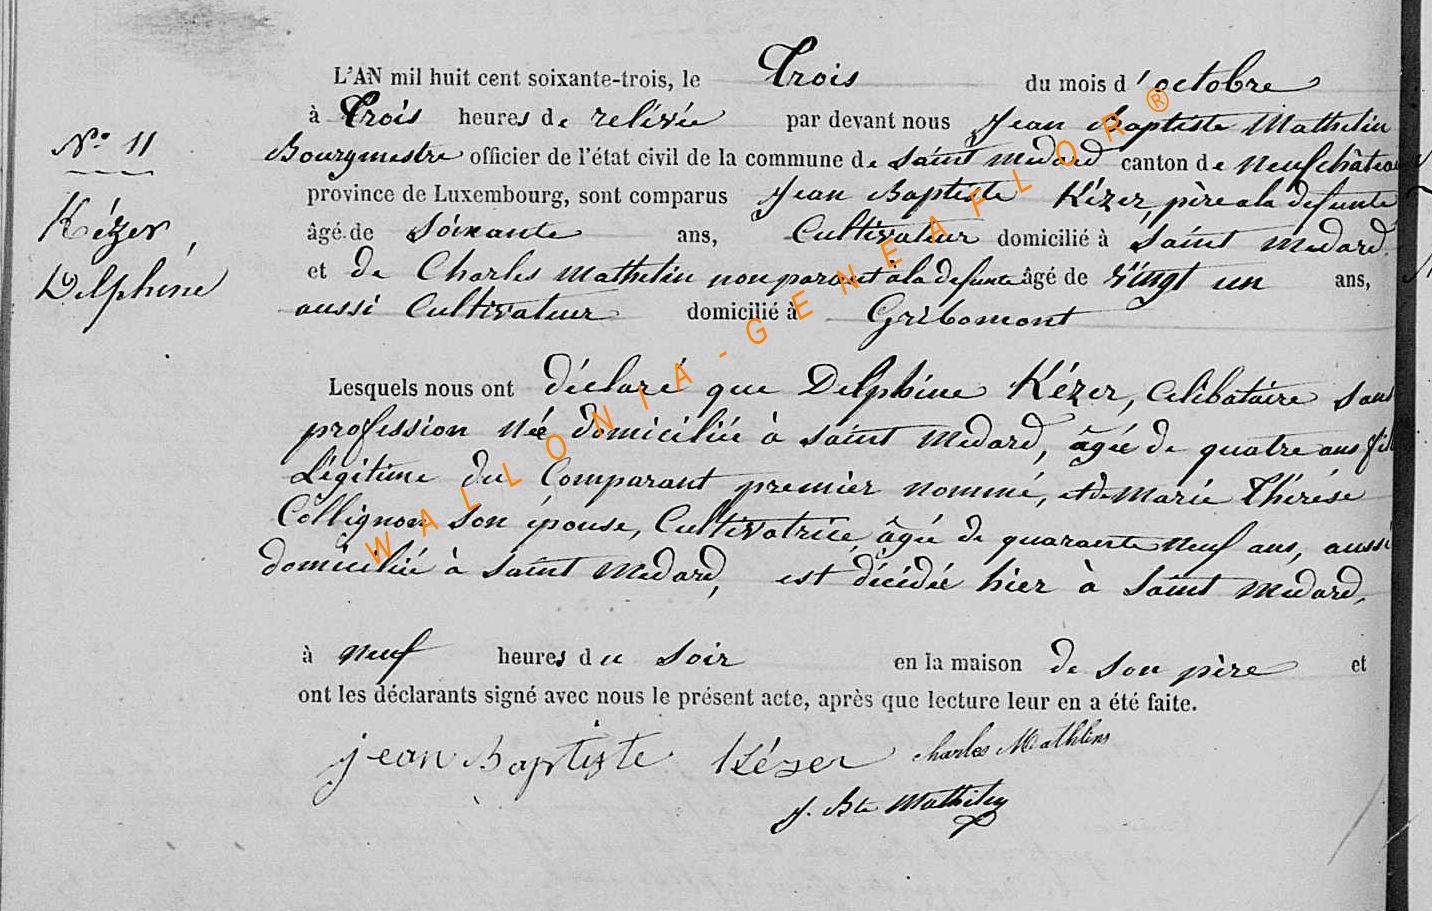 L'AN mil huit cent soixante-trois, le Trois du mois d'octobre
à Trois heures de relévée par devant nous Jean Baptiste Mathelin
Bourgmestre officier de l'état civil de la commune de Saint Medard canton de Neufchâteau
province de Luxembourg, sont comparus Jean Baptiste Kézer, père a la defunte
âgé de Soixante ans, Cultivateur domicilié à Saint Medard
et de Charles Mathelin non parent à la defunte âgé de vingt un ans,
aussi Cultivateur domicilié à Gribomont
N.° 11
Kézer,
Delphine
Lesquels nous ont déclaré que Delphine Kézer, Celibataire sans
profession née domiciliée à Saint Medard, âgée de quatre ans
Légitime du Comparant premier nommé, et de Marie Thérèse
Collignon son épouse, Cultivatrice âgée de quarante neuf ans, aussi
domiciliée à Saint Medard, est décédée hier à Saint Medard,
à neuf heures du soir en la maison de son père et
ont les déclarants signé avec nous le présent acte, après que lecture leur en a été faite.
jean Baptiste Kézer Charles Mathlins
J. Bte Mathelin
WALLONIA-GENEAFLOR®